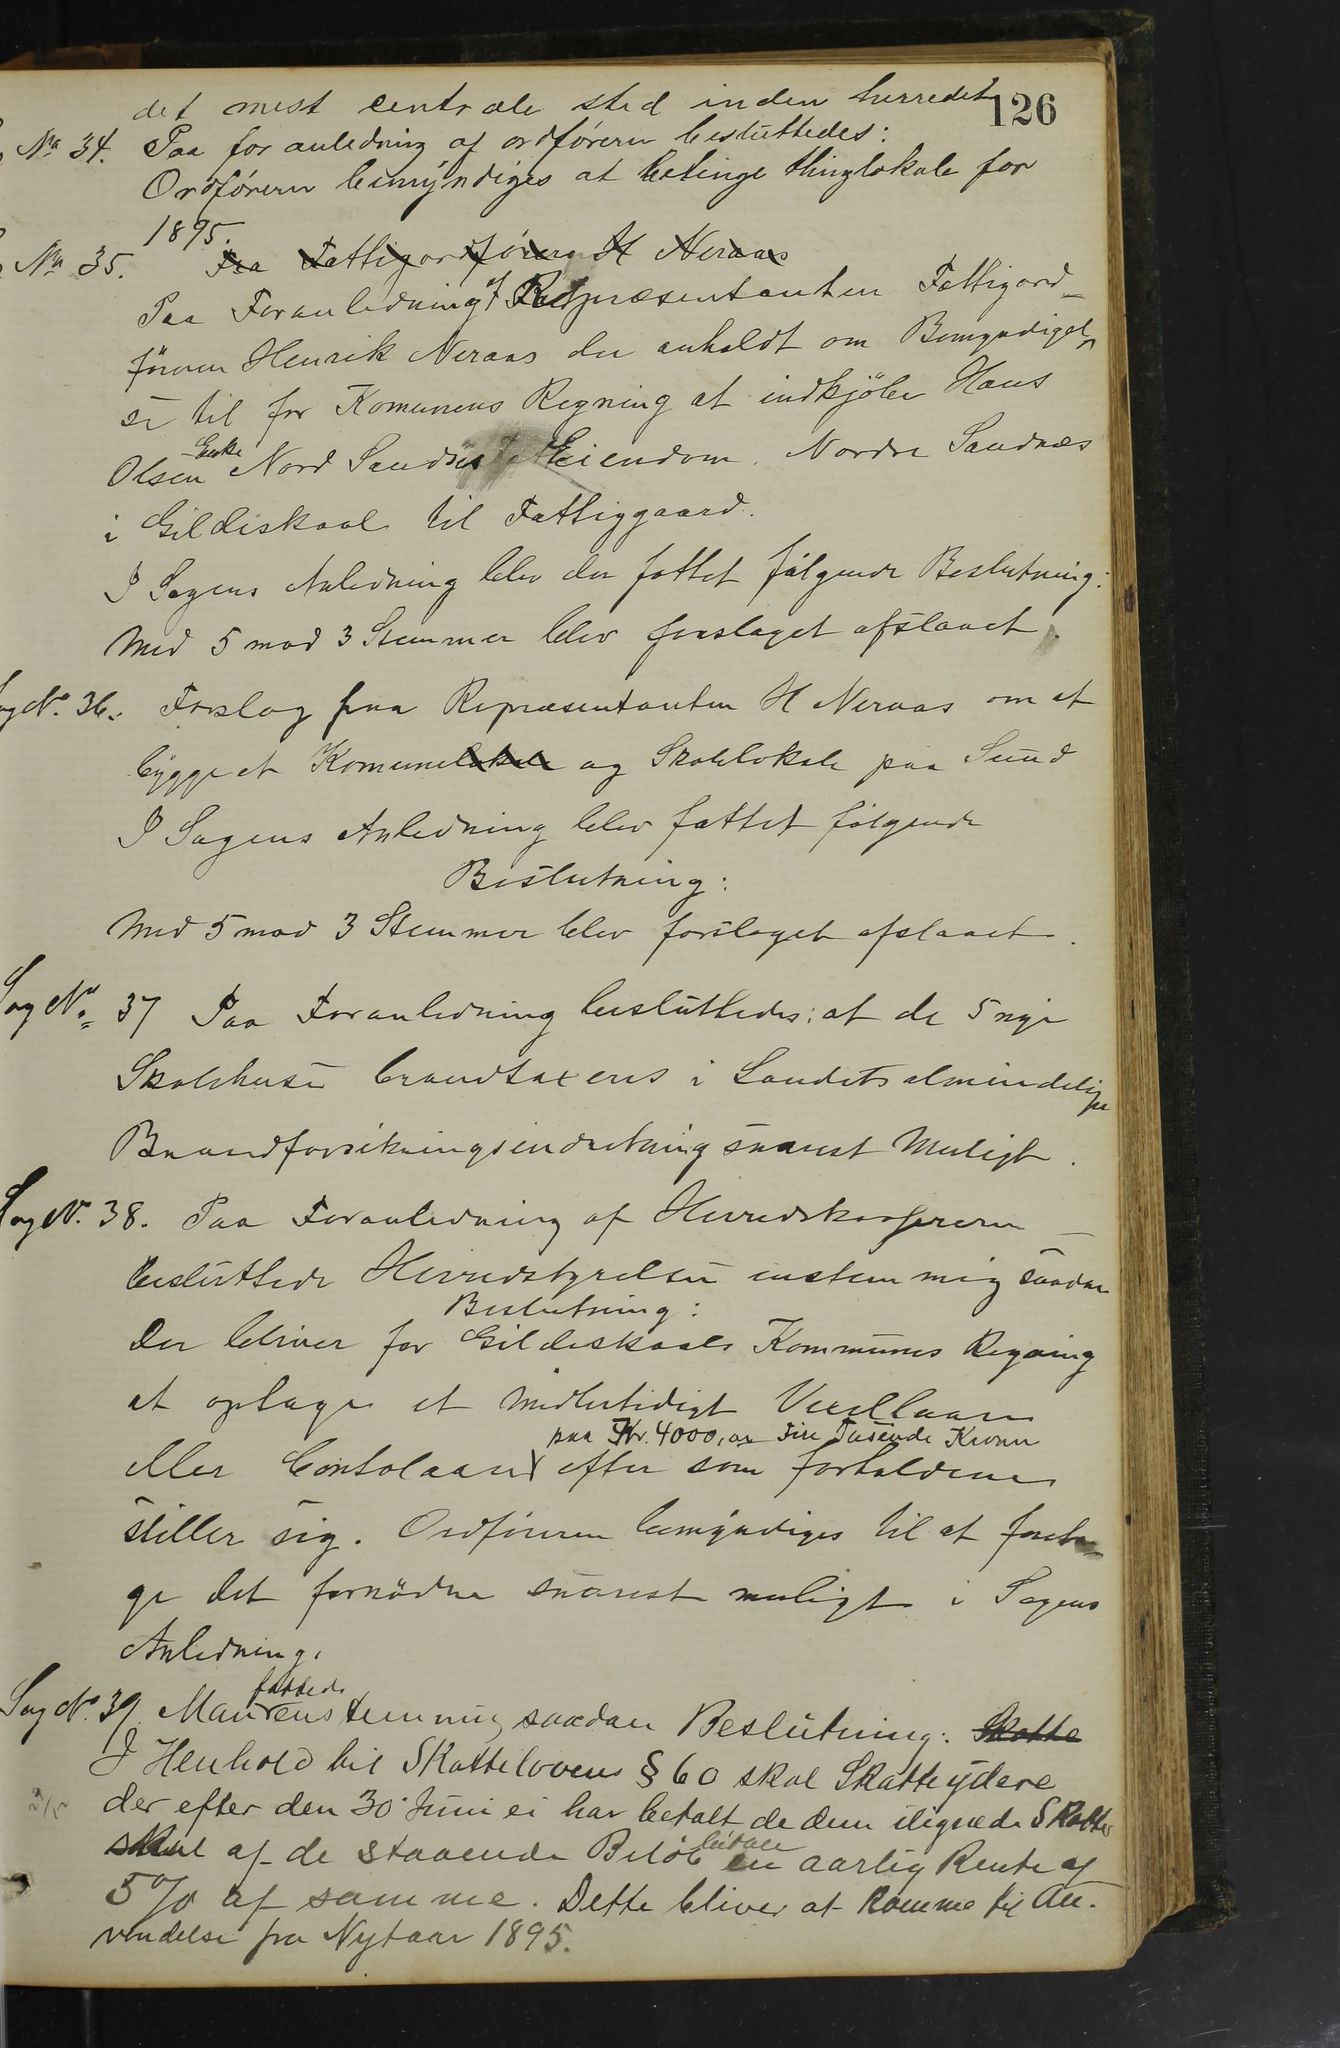 126
det mest centrale sted inden herredet
No 34. Paa foranledning af ordføreren besluttedes:
Ordføreren bemyndiges at betinge thinglokale for
1895.
No 35. Fra Fattigordføreren H Neraas
Paa Foranledning af Repræsentanten Fattigord-
føreren Henrik Neraas der anholdt om Bemyndigel-
se til for Komunens Regning at indkjøbe Hans
Olsen Enke Nord Sandnes Eiendom. Nordre Sandnæs
i Gildeskaal til Fattiggaard.
I Sagens Anledning blev der fattet følgende Beslutning:
Med 5 mod 3 Stemmer blev forslaget afslaaet.
Sag No. 36. Forslag fraa Repræsentanten H Neraas om at
bygge et Komunelokale og Skolelokale paa Sund
I Sagens Anledning blev fattet følgende
Beslutning:
Med 5 mod 3 Stemmer blev forslaget afslaaet.
Sag No. 37 Paa Foranledning besluttedes: at de 5 nye
Skolehuse brandtaxeres i Landets almindelige
Brandforsikringsindretning snarest Muligt.
Sag No. 38. Paa Foranledning af Herredskasereren
besluttede Herredstyrelsen enstemmig saadan
Beslutning:
Der bliver for Gildeskaals Kommunes Regning
at optage et midlertidigt Vexellaan
paa Kr. 4000,00 Fire Tusende Kroner
eller Contolaan efter som forholdene
stiller sig. Ordføreren bemyndiges til at foreta-
ge det fornødne snarest muligt i Sagens
Anledning.
Sag No. 39. Man fattede enstemmig saadan Beslutning: Skatte
I Henhold til Skattelovens § 60 skal Skatteydere
der efter den 30. Juni ei har betalt de dem ilignede Skatter
skal af de staaende Beløb betale en aarlig Rente af
5% af samme. Dette bliver at komme til An-
vendelse fra Nytaar 1895.